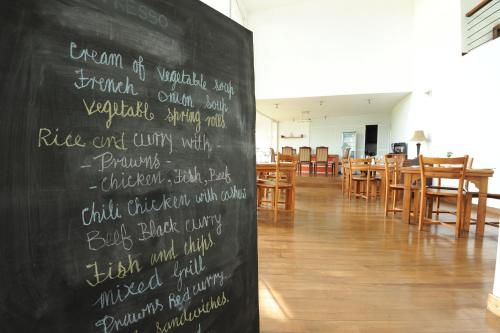 Cream of vegetable soup
French Onion soup
Vegetable spring rolls.
Rice and curry with -
- Prawns -
- chicken, Fish, Beef
Chili Chicken with cashews
Beef Black curry
Fish and chips
Mixed Grill
Prawns Red curry..
Sandwiches.